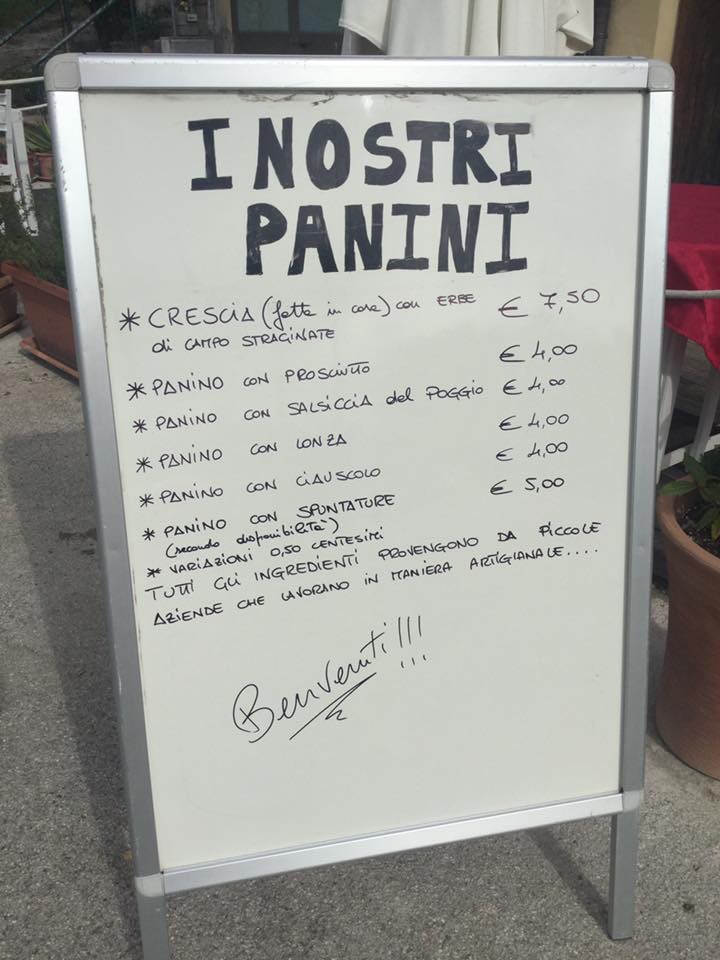 I NOSTRI
PANINI
* CRESCIA (fatta in casa) con ERBE € 7,50
di CAMPO STRASCINATE
* PANINO CON PROSCIUTTO € 4,00
* PANINO CON SALSICCIA del POGGIO € 4,00
* PANINO CON LONZA € 4,00
* PANINO CON CIAUSCOLO € 4,00
* PANINO CON SPUNTATURE € 5,00
(secondo disponibilità)
* VARIAZIONI 0,50 CENTESIMI
TUTTI GLI INGREDIENTI PROVENGONO DA PICCOLE
AZIENDE CHE LAVORANO IN MANIERA ARTIGIANALE....
Benvenuti!!!